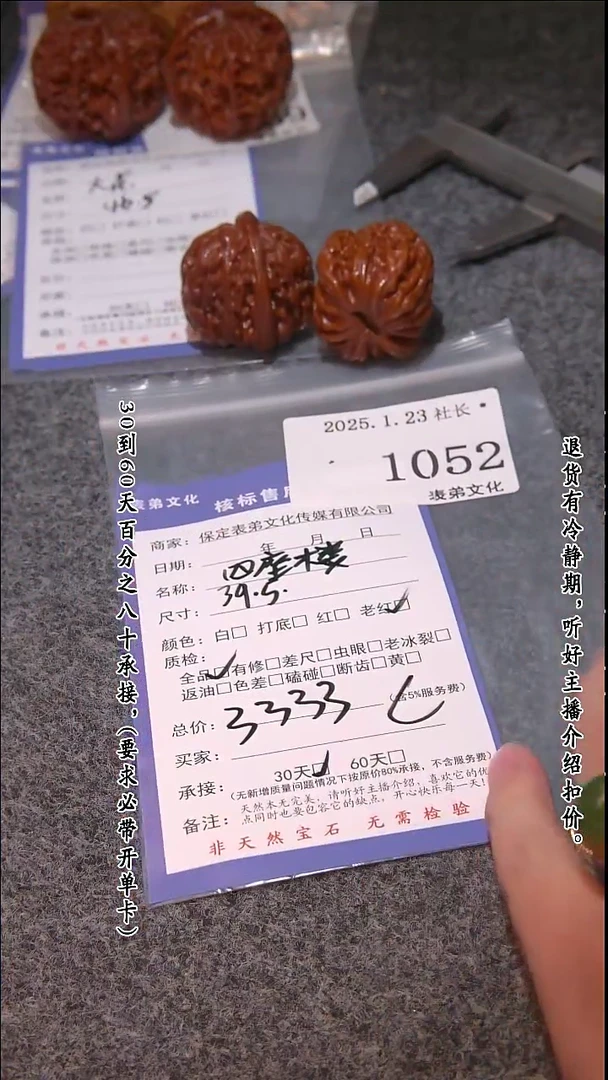 46.5
2025.1.23 社长
1052
表弟文化
表弟文化 核标售后
商家：保定表弟文化传媒有限公司
日期： 年 月 日
名称：四座楼
尺寸：39.5.
颜色：白□ 打底□ 红□ 老红□
质检：
全品□有修□差尺□虫眼□老冰裂□
返油□色差□磕碰□断齿□黄□
总价：3333 (含5%服务费)
买家：
承接：30天□ 60天□
(无新增质量问题情况下按原价80%承接，不含服务费)
备注：天然本无完美，请听好主播介绍，喜欢它的优
点同时也要包容它的缺点，开心快乐每一天！
非天然宝石 无需检验
30到60天百分之八十承接，(要求必带开单卡)
退货有冷静期，听好主播介绍扣价。